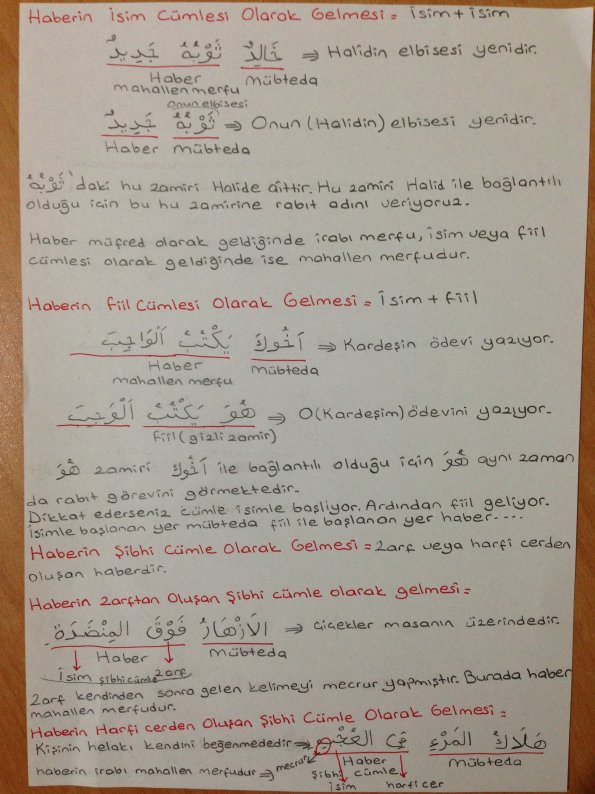 Haberin İsim Cümlesi Olarak Gelmesi = İsim + İsim
خَالِدٌ ثَوْبُهُ جَدِيدٌ ⇒ Halidin elbisesi yenidir.
Haber Mübteda
mahallen merfu
Onun elbisesi
ثَوْبُهُ جَدِيدٌ ⇒ Onun (Halidin) elbisesi yenidir.
Haber Mübteda
ثَوْبُهُ'daki hu zamiri Halide aittir. Hu zamiri Halid ile bağlantılı
olduğu için bu hu zamirine rabıt adını veriyoruz.
Haber müfred olarak geldiğinde irabı merfu, isim veya fiil
cümlesi olarak geldiğinde ise mahallen merfudur.
Haberin Fiil Cümlesi Olarak Gelmesi = İsim + Fiil
اَخُوكَ يَكْتُبُ اَلْوَاجِبَ ⇒ Kardeşin ödevi yazıyor.
Haber Mübteda
mahallen merfu
هُوَ يَكْتُبُ اَلْوَجِبَ ⇒ O (Kardeşim) ödevini yazıyor.
Fiil (gizli zamir)
هُوَ zamiri اَخُوكَ ile bağlantılı olduğu için هُوَ aynı zaman
da rabıt görevini görmektedir.
Dikkat ederseniz cümle isimle başlıyor. Ardından fiil geliyor.
İsimle başlanan yer mübteda fiil ile başlanan yer haber....
Haberin Şibhi Cümle Olarak Gelmesi = Zarf veya harfi cerden
oluşan haberdir.
Haberin Zarftan Oluşan Şibhi cümle olarak gelmesi =
اَلْاَزْهَارُ فَوْقَ المِنْضَدَةِ ⇒ Çiçekler masanın üzerindedir.
Haber Mübteda
İsim şibhi cümle zarf
Zarf kendinden sonra gelen kelimeyi mecrur yapmıştır. Burada haber
mahallen merfudur.
Haberin Harfi cerden Oluşan Şibhi Cümle Olarak Gelmesi =
Kişinin helakı kendini beğenmededir ⇒ هَلَاكُ المَرْءِ فِي العُجْبِ
haberin irabı mahallen merfudur ⇒ mecrur Haber Mübteda
Şibhi cümle
isim harfi cer